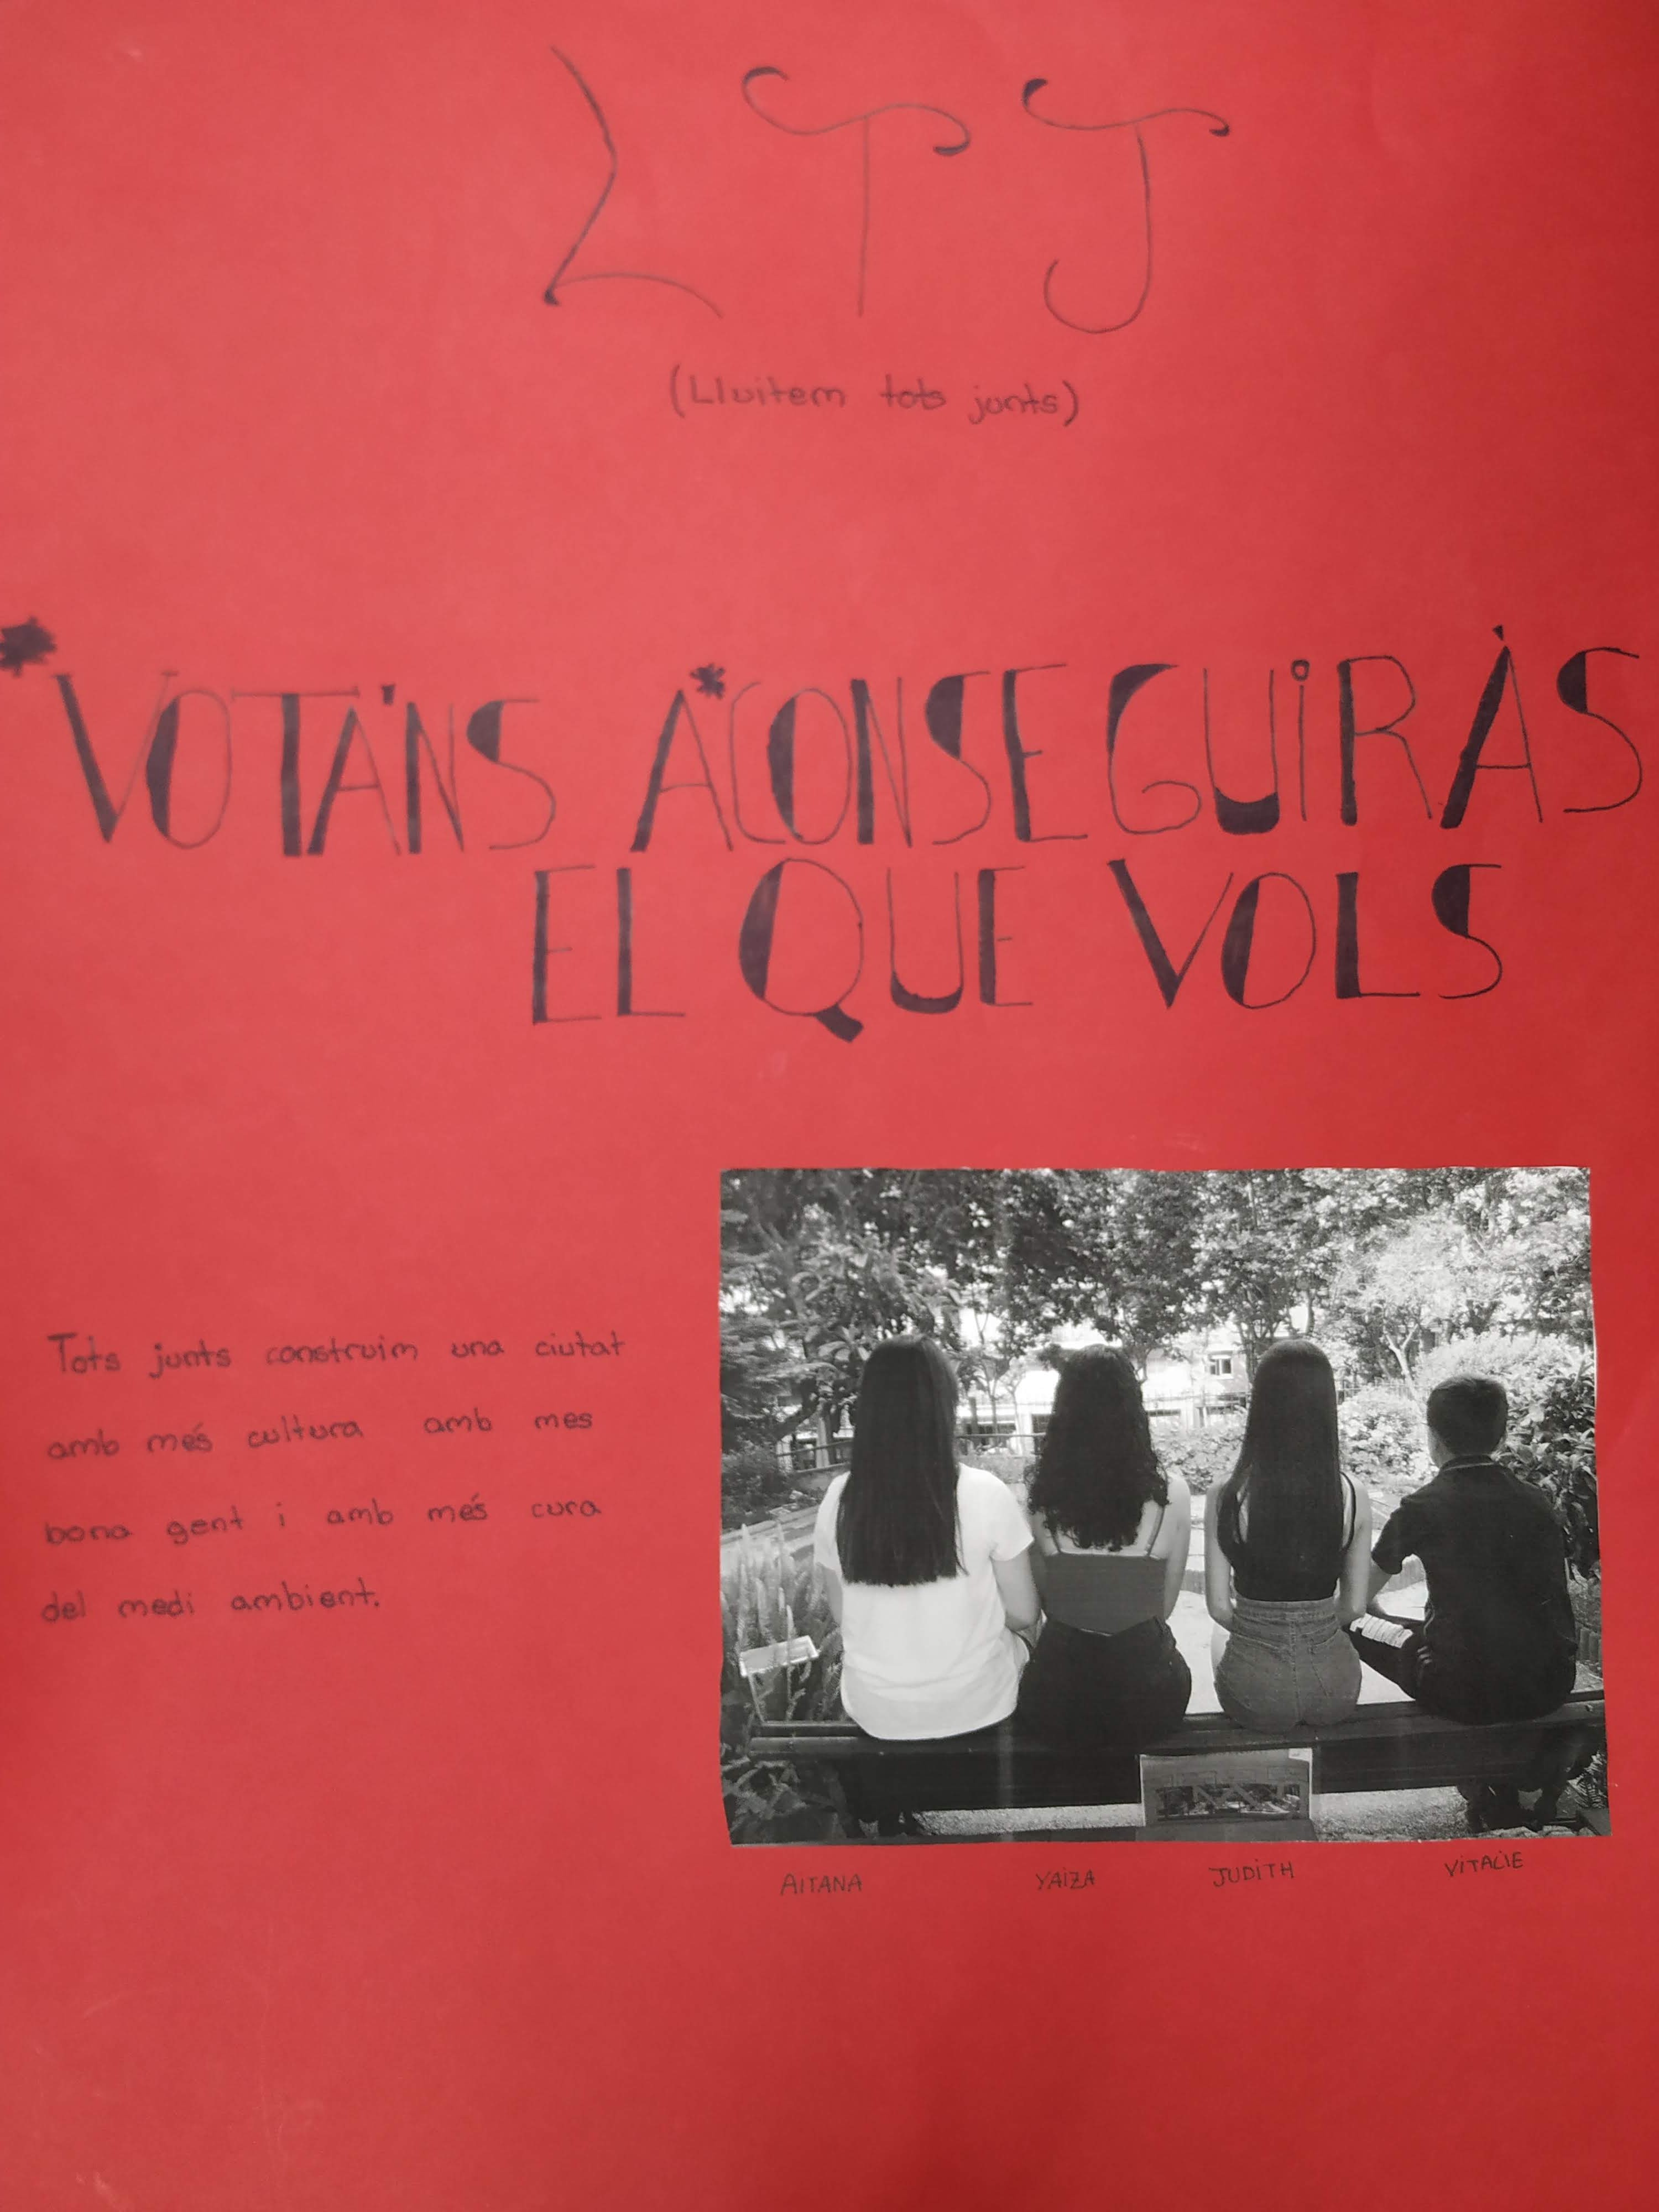 LTJ
(Lluitem tots junts)
*VOTA'NS A*CONSEGUiRÀS
EL QUE VOLS
Tots junts construim una ciutat
amb més cultura amb mes
bona gent i amb més cura
del medi ambient.
AITANA YAiZA JUDiTH ViTALiE